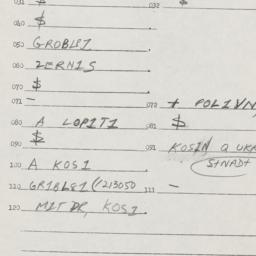 031 $ 032 $
040 $
050 GROBLEI
060 ZERNIS
070 $
071 - 072 + POLIVN,
080 A LOPITI 081 $
090 $ 091 KOSIN Q UKR
STNAD+
100 A KOSI
110 GRIBLEI (1213050 111 -
120 MIT DR, KOSI